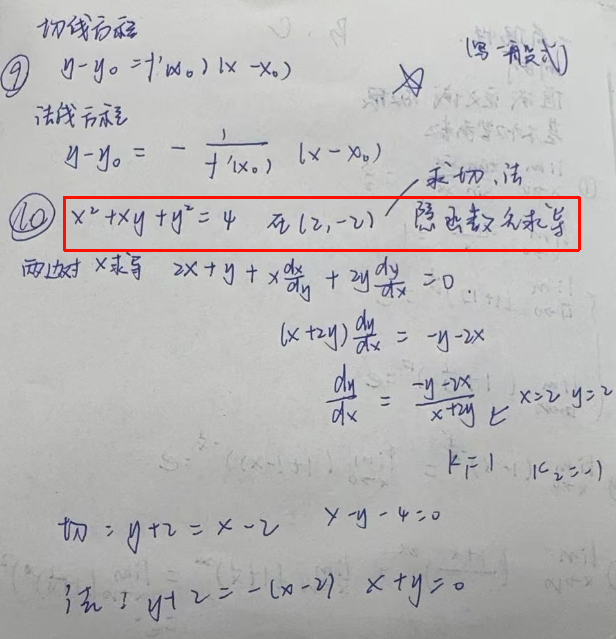 切线方程
⑨ y-y₀=f'(x₀)(x-x₀) (写一般式)
法线方程
y-y₀ = - 1/f'(x₀) (x-x₀)
求切,法
⑩ x²+xy+y²=4 在(2,-2) 隐函数求导
两边对x求导 2x+y+x dx/dy + 2y dy/dx =0.
(x+2y) dy/dx = -y-2x
dy/dx = -y-2x/x+2y x=2 y=2
k₁=1 k₂=-1
切: y+2=x-2 x-y-4=0
法: y+2=-(x-2) x+y=0